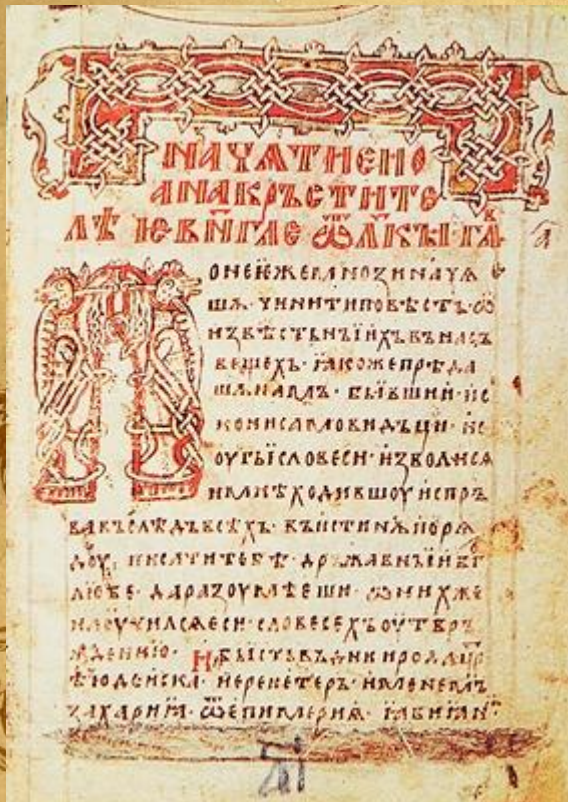 НАЧѦТИЕ ИО
АНА КРЬСТИТЕ
ЛѢ ІЕВН҃ГЛЕ ѾЛѸКЫ ГЛ҃А
ОНЕІЖЕ МНОЗИ НАЧѦ
ШѦ · ЧИНИТИ ПОВѢСТЬ · Ѡ
ИЗВѢСТЬНЫИХЪ ВЪ НАСЪ
ВЕЩЕХЬ · ꙖКОЖЕ ПРѢДА
ШѦ НАМЬ · БЫВШИИ ИС
КОНИ САМОВИДЪЦИ · И С
ОУГЫ СЛОВЕСИ · ИЗВОЛИСѦ
И МНѢ ХОДИВШОУ ИСПРЬ
ВА ВЪСЛѢДЬ ВСѢХЬ · ВЪИСТИНѪ ПОРѦ
ДОУ, ПИСАТИ ТЕБѢ · ДРЪЖАВНЫИ Б҃Г
ЛЮБЕ · ДА РАЗОУМѢЕШИ · Ѡ НИХЖЕ
НАОУЧИЛСѦ ЕСИ · СЛОВЕСЕХЪ ОУТВРЬ
ЖДЕНИЮ · И БЫСТЬ ВЪ Д҃НИ ИРОДА ЦР҃
Ѣ ІЮДѢИСКА · ИЕРЕИ ЕТЕРЬ · ИМЕНЕМЬ
ЗАХАРИꙖ · Ѿ ЕФИМЕРИѦ · АВИꙖНѦ